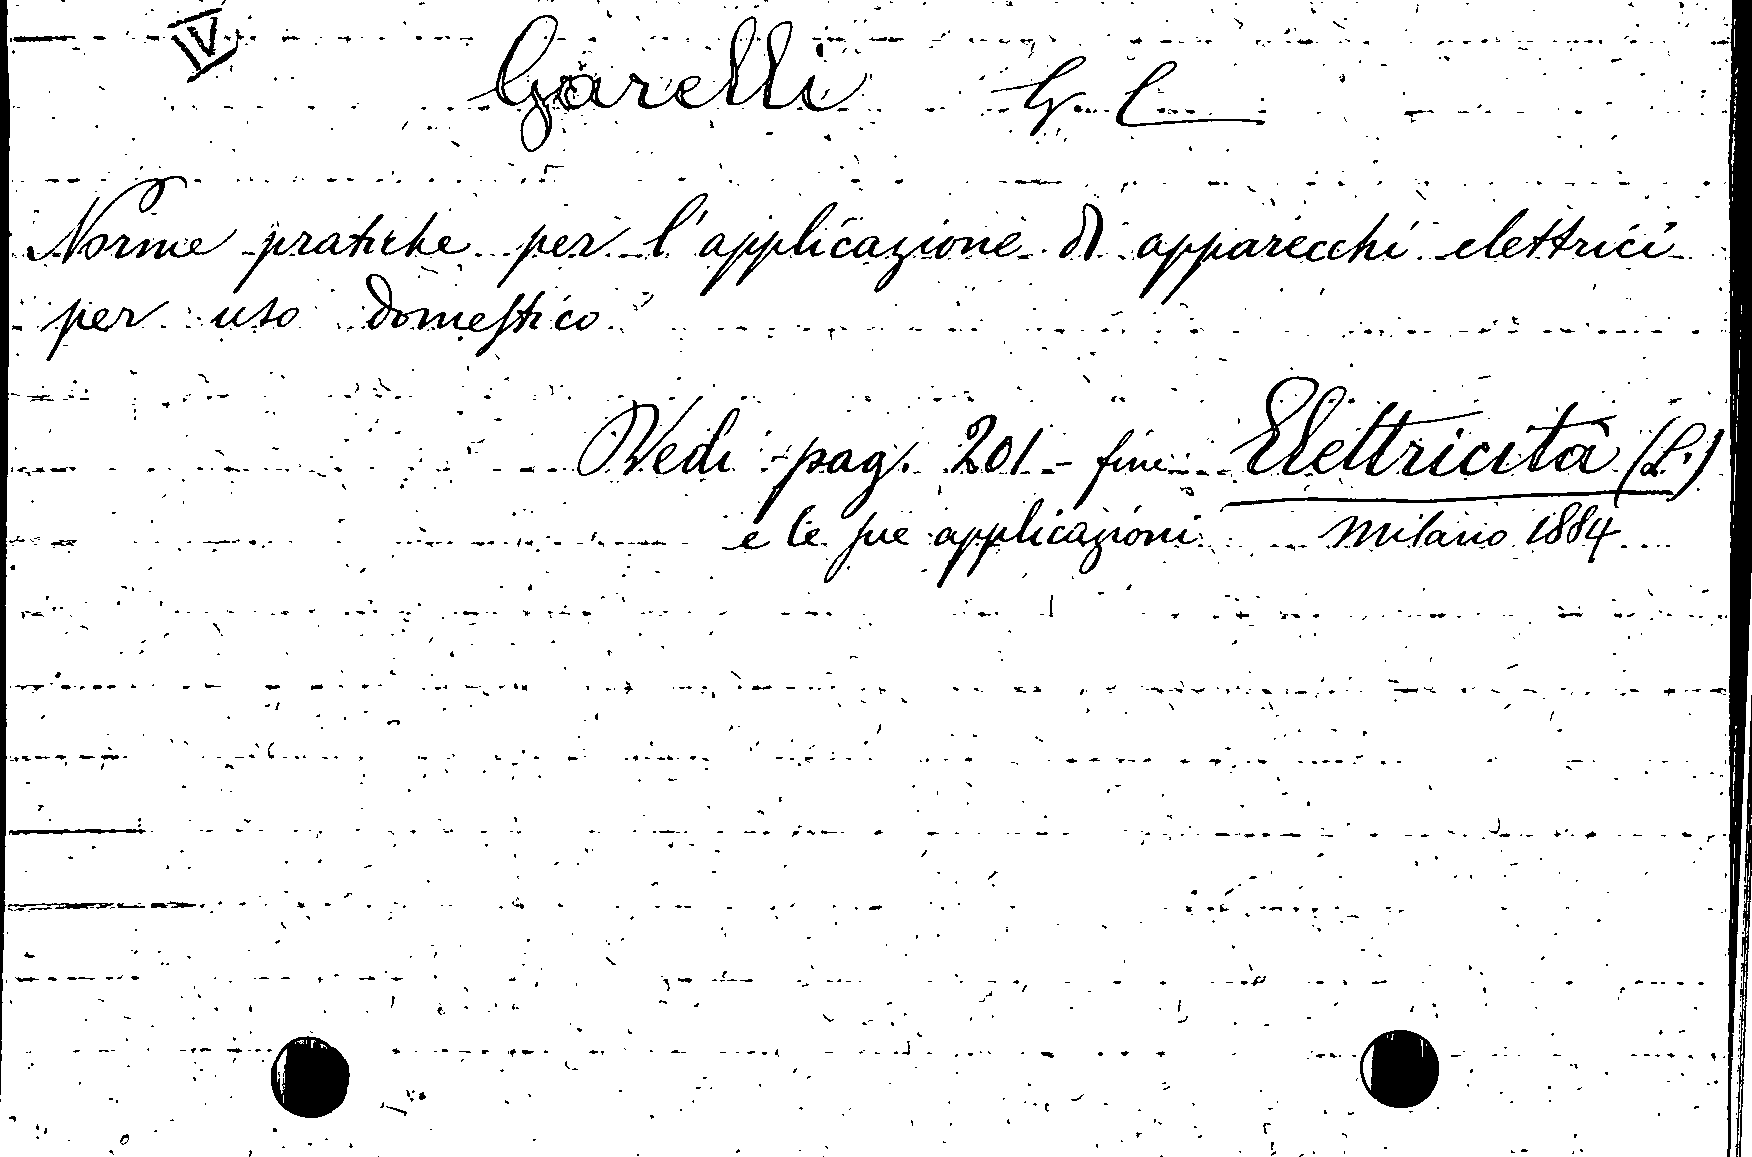 IV
Garelli G. C.
Norme pratiche per l'applicazione di apparecchi elettrici
per uso domestico
Vedi pag. 201 - fine Elettricità (L')
e le sue applicazioni Milano 1884